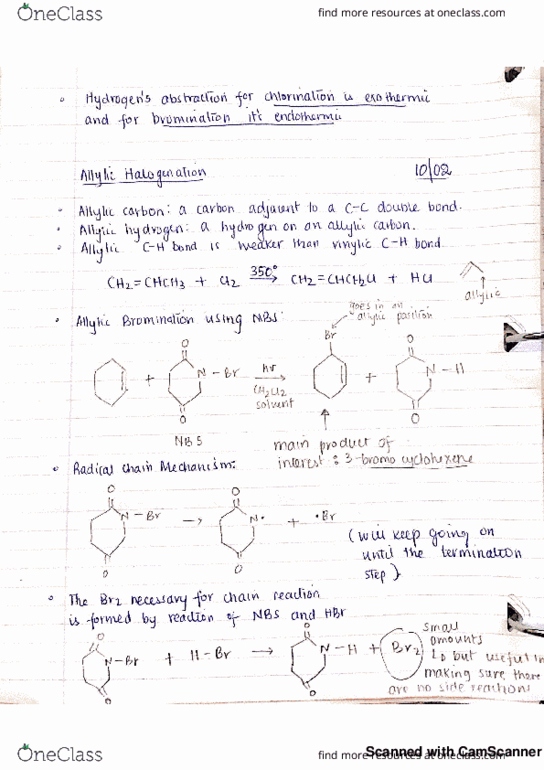 OneClass
find more resources at oneclass.com
Hydrogen's abstraction for chlorination is exothermic
and for bromination it's endothermic
Allylic Halogenation
10/02
Allylic carbon: a carbon adjacent to a C-C double bond.
Allylic hydrogen: a hydrogen on an allylic carbon.
Allylic C-H bond is weaker than vinylic C-H bond
CH2=CHCH3 + Cl2 350° → CH2=CHCH2Cl + HCl
allylic
Allylic Bromination using NBS:
goes in an
allylic position
Br
O
O
+ N-Br hv → + N-H
CH2Cl2
solvent
O
O
NBS
main product of
interest: 3-bromo cyclohexene
Radical chain Mechanism:
O
O
N-Br → N• + •Br
O
O
(will keep going on
until the termination
step)
The Br2 necessary for chain reaction
is formed by reaction of NBS and HBr
O
O
N-Br + H-Br → N-H + Br2
O
O
small
amounts
but useful in
making sure there
are no side reactions
OneClass
find more resources at oneclass.com
Scanned with CamScanner